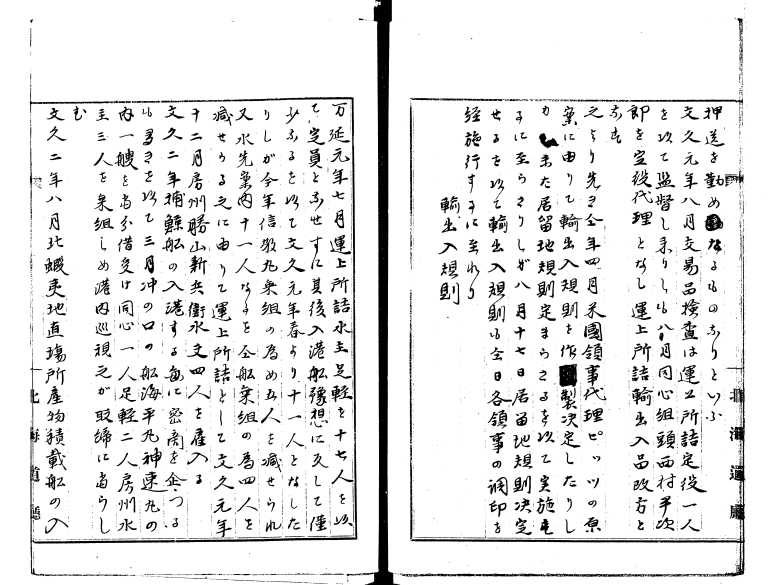 押送を勤め なるものなりといふ
文久元年八月交易品検査は運上所詰定役一人
を以て監督し来りしも八月同心組頭西村平次
郎を定役代理となし運上所詰輸出入品改方と
なす
之より先き仝年四月米國領事代理ピッツの原
案に由りて輸出入規則を作 製決定したりし
も未た居留地規則定まらさるを以て実施
に至らさりしが八月十七日居留地規則決定
せるを以て輸出入規則も仝日各領事の調印を
経施行するに至れり
輸出入規則
万延元年七月運上所詰水主足軽を十七人を以
て定員となせすに其後入港船豫想に反して僅
少なるを以て文久元年春より十一人となした
りしが今年信敬丸乗組の為め五人を減せられ
又水先案内十一人なりしを仝船乗組の為四人を
減せらる之に由りて運上所詰として文久元年
十二月房州勝山新兵衛水主四人を雇入る
文久二年捕鯨船の入港する毎に密商を企つる
もの多きを以て三月沖の口の船海平丸神速丸の
内一艘を当分借受け同心一人足軽二人房州水
主三人を乗組しめ港内巡視之が取締に当らし
む
文久二年八月北蝦夷地直場所産物積載船の入
北海道廳
北海道廳